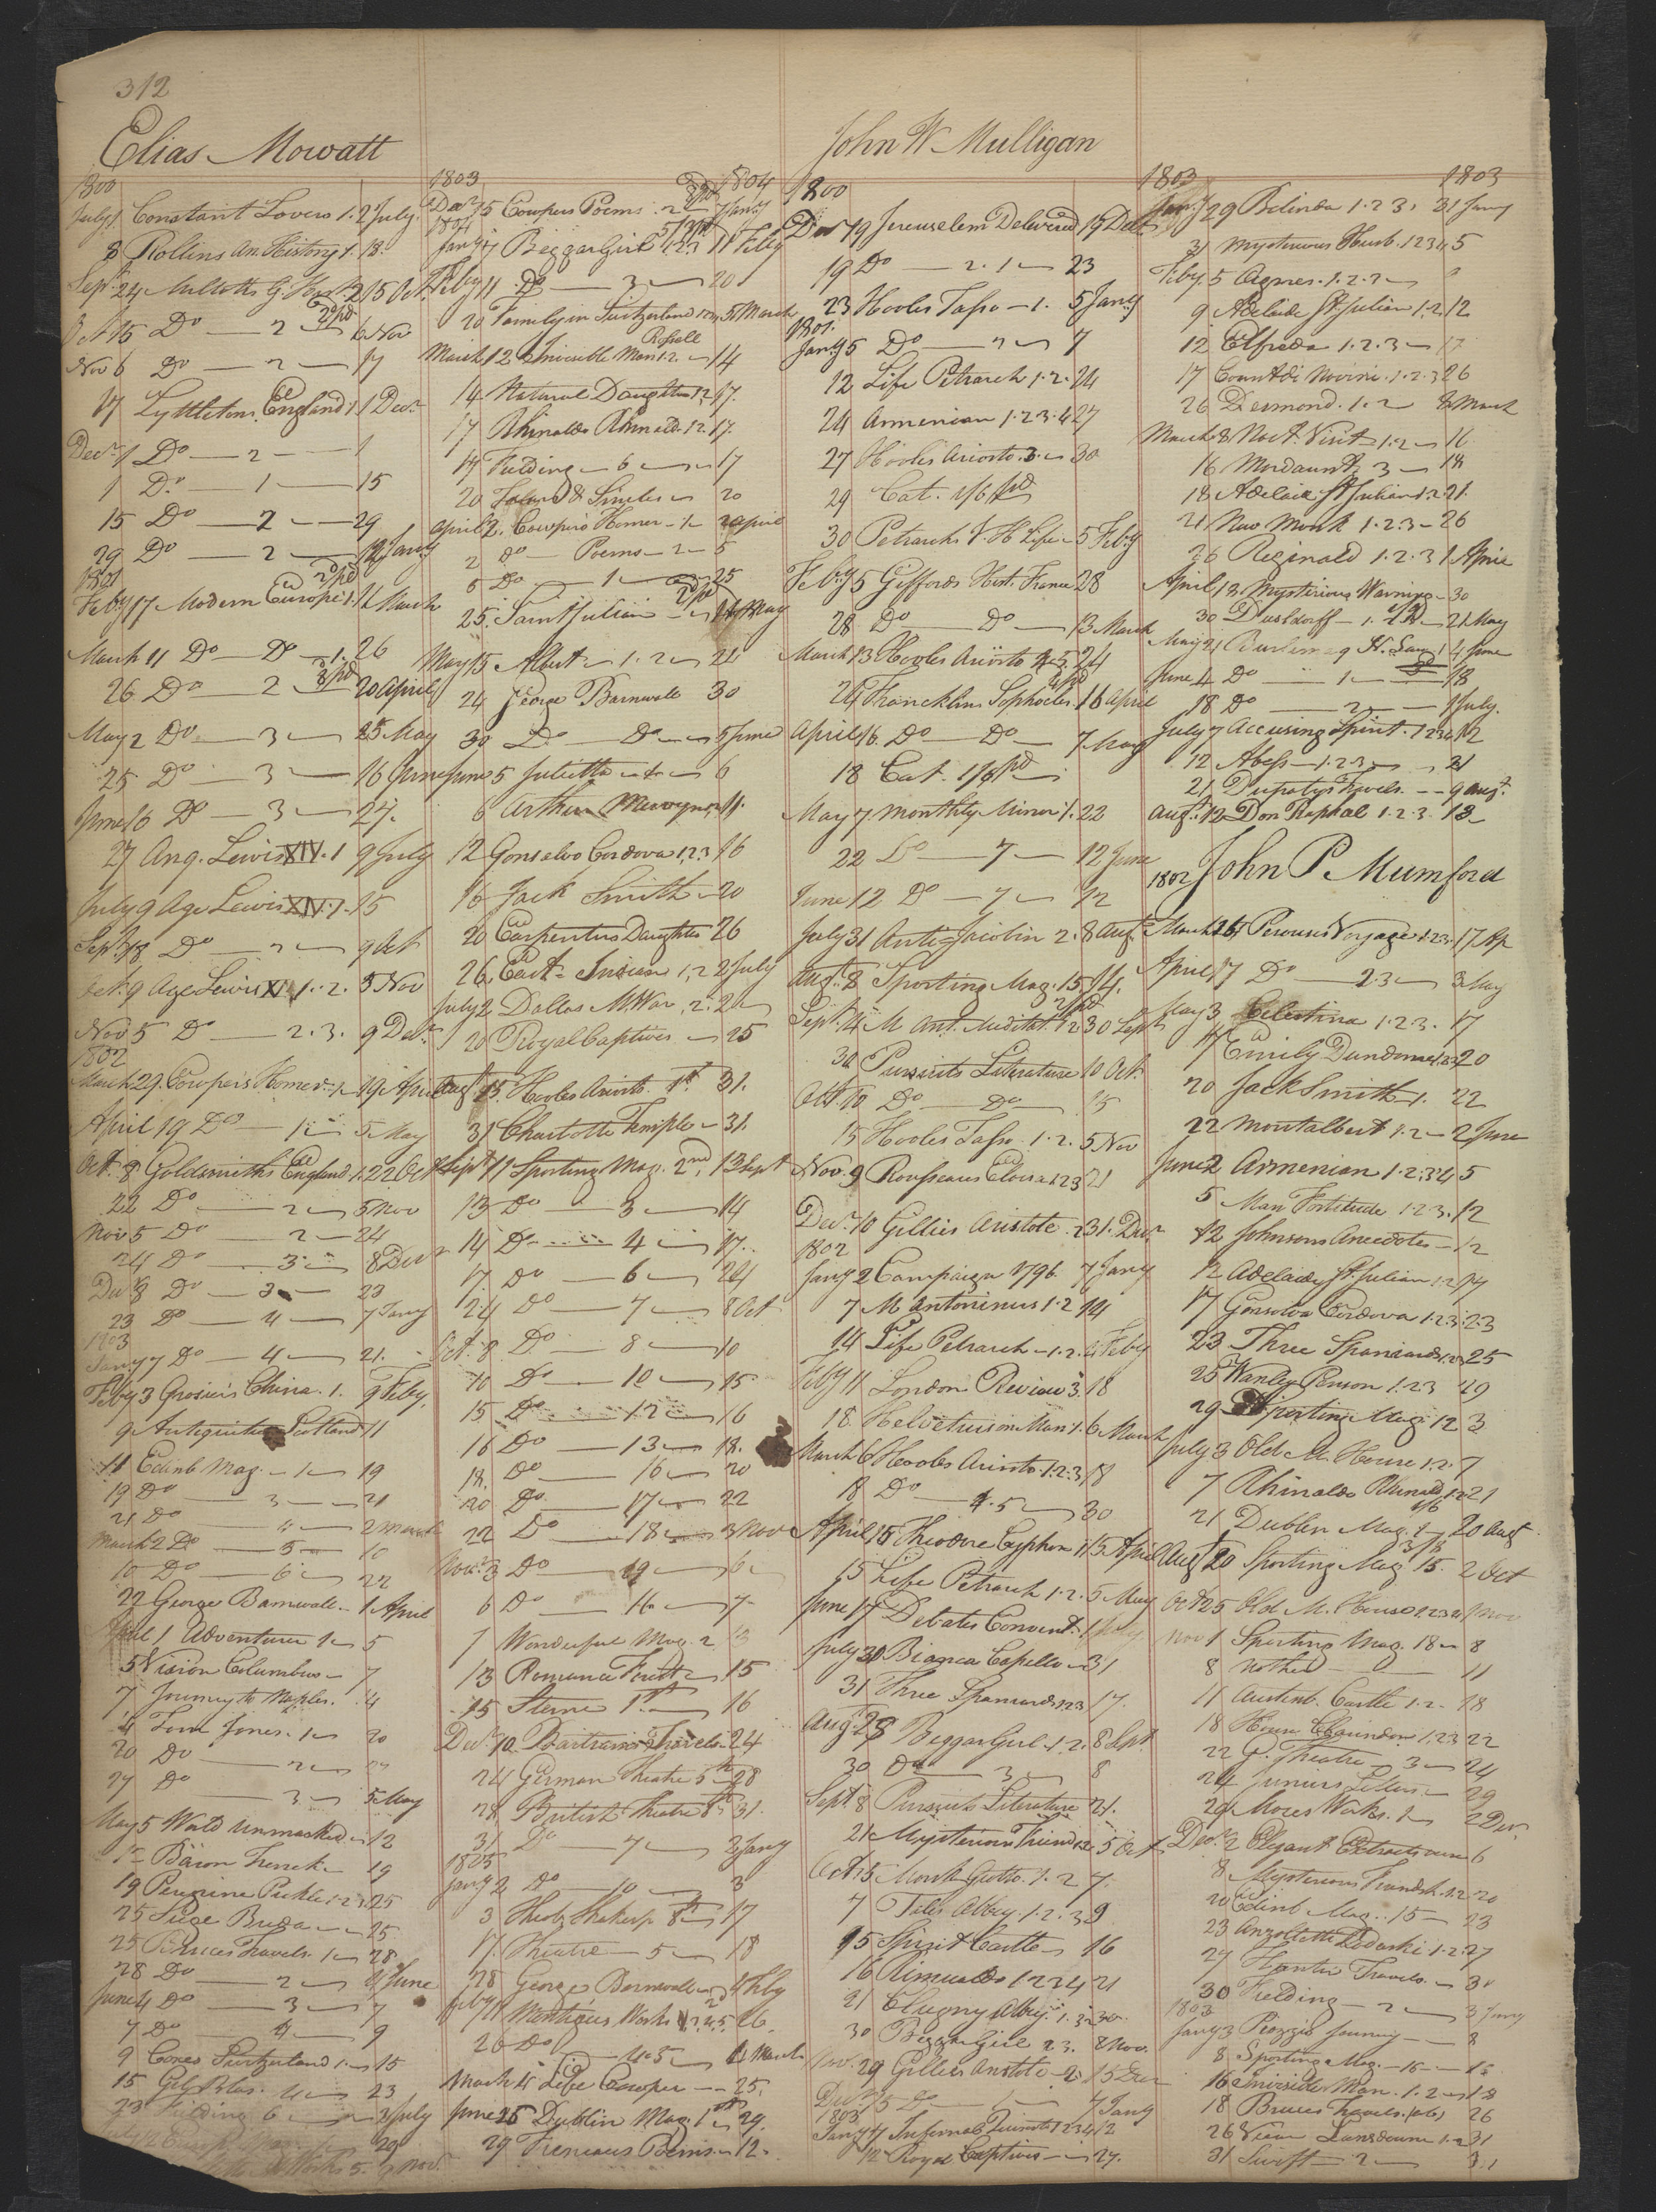 312
Elias Mowatt
1800
July 1 Constant Lovers 1. 2 July
8 Rollins An. History 1. 18.
Sept. 24 2 15 Oct
Oct 15 Do — 2 — 6 Nov
Nov 6 Do — 2 — 17
17 Lyttletons England 1 1 Decr
Decr 1 Do — 2 — 1
1 Do — 1 — 15
15 Do — 2 — 29
29 Do — 2 — Jany
1801
Feby 17 Modern Europe 1. 11 March
March 11 Do — Do — 1. 26
26 Do — 2 — 20 April
May 2 Do — 3 — 25 May
25 Do — 3 — 16 June
June 16 Do — 3 — 27.
27 Ang. Lewis XIV. 1 9 July
July 9 Age Lewis XIV. 1. 15
Sept. 18 Do — 2 — 9 Oct
Oct. 9 Age Lewis XIV 1. 2. 5 Nov
Nov 5 Do — 2. 3. 9 Decr
1802
March 29. Cowpers Homer — 1 — 19 April
April 19 Do — 1 — 5 May
Oct. 8 Goldsmiths England 1. 22 Oct
22 Do — 2 — 5 Nov
Nov 5 Do — 2 — 24
24 Do — 3 — 8 Decr
Decr 8 Do — 3 — 23
23 Do — 4 — 7 Jany
1803
Jany 7 Do — 4 — 21.
Feby 3 Grosiers China. 1. 9 Feby.
9 Antiquities Scotland 11
11 Edinb Mag. — 1 — 19
19 Do — 3 — 21
21 Do — 4 — 2 March
March 2 Do — 5 — 10
10 Do — 6 — 22
22 George Barnwell — 1 April
April 1 Adventurer 1 — 5
5 Vision Columbus — 7
7 Journey to Naples. 4
4 Tom Jones. 1 — 20
20 Do — 2 —
27 Do — 3 — 5 May
May 5 World Unmasked — 12
12 Baron Trenck — 19
19 Peregrine Pickle 1. 2. 3 25
25 Siege Breda — 25
25 Bruces Travels. 1 — 28
28 Do — 2 — 4 June
June 4 Do — 3 — 7
7 Do — 4 — 9
9 Coxes Switzerland 1 — 15
15 Gil Blas. 4 — 23
23 Fielding 6 — 2 July
29
Works 5. Nov.
1803 1804
Decr 15 Cowpers Poems. 2 7 Jany
1804
Jany 7 Beggar Girl 1. 2. 11 Feby
Feby 11 Do — 3 — 20
20 Family in Switzerland 5 March
March 12 Invisible Man 1. 2. — 14
14 Natural Daughter 1. 2 17.
17 Rhinaldo Rhinald. 1 2. 17.
17 Fielding — 6 — 17
20 Smiles — 20
April 2. Cowpers Homer — 1 — 2 April
2 Do — Poems — 2 — 5
5 Do — 1 — 25
25. Saint Julian — May
May 15 Albert — 1. 2 — 24
24 George Barnwell 30
30 Do — Do — 5 June
June 5 Juliette — 6
6 Arthur Mervyn 11.
12 Gonsalvo Cordova 1. 2. 3 16
16 Jack Smith — 20
20 Carpenters Daughter 26
26. East Indian 1. 2 2 July
July 2 Dallas M. War, 2. 2
20 Royal Captives — 25
Augt 15. Hooles Ariosto. 1st. 31.
31 Charlotte Temple — 31.
Sept 11 Sporting Mag. 2nd. 13 Sept
13 Do — 3 — 14
14 Do — 4 — 17.
17. Do — 6 — 24
24 Do — 7 — 8 Oct
Oct. 8 Do — 8 — 10
10 Do — 10 — 15
15 Do — 12 — 16
16 Do — 13 — 18.
18. Do — 16 — 20
20 Do — 17 — 22
22 Do — 18 — 3 Nov
Nov. 3 Do — 19 — 6
6 Do — 16 — 7
7 Wonderful Mag. 2 13
13 Romance Forest — 15
15 Sterne 1st. — 16
Decr 10 Bartrams Travels — 24
24 German Theatre 5th 28
28 British Theatre 8th 31.
31 Do — 7 — 2 Jany
1805
Jany 2 Do — 10 — 3
3 Theob. Shakesp 8th 17
17. Theatre — 5 — 18
28 George Barnwell — 4 Feby
Feby 11 Montagues Works 26.
26 Do — 4. 5 — March
March 15 Life Cowper — 25.
June 25 Dublin Mag. 1st 29.
29 Freneaus Poems — 12.
John W Mulligan
1800
Decr 19 Jerusalem Delivered 19 Decr
19 Do — 2. 1 — 23
23 Hooles Tasso — 1. 5 Jany
1801.
Jany 5 Do — 2 — 7
12 Life Petrarch 1. 2. 24
24 Armenian 1. 2. 3. 4 27
27 Hooles Ariosto. 3. — 30
29 Cat. 1/6 pd
30 Petrarchs V. & Life — 5 Feby
Feby 5 Giffords Hist. France 28
28 Do — Do — 13 March
March 13 Hooles Ariosto 4. 5. 24
24 Francklins Sophocles. 16 April
April 16. Do — Do — 7 May
18 Cat. 1/6 pd
May 7 Monthly Mirror 1. 22
22 Do — 7 — 12 June
June 12 Do — 7 — 12
July 31 Anti-Jacobin 2. 8 Augt
Augt 8 Sporting Mag. 15. 14.
Sept. 14 M Ant. Meditat. 1 2 30 Sept
30 Pursuits Literature 10 Oct.
Oct. 10 Do — Do — 15
15 Hooles Tasso 1. 2. 5 Nov
Nov. 9 Rousseaus Eloisa 1. 2 3 21
Decr 10 Gillies Aristotle. 2 31. Decr
1802
Jany 2 Campaign 1796. 7 Jany
7 M Antoninus 1. 2 14
14 Life Petrarch — 1. 2. 4 Feby
Feby 11 London Review 3. 18
18 Helvetius on Man 1. 6 March
March 6 Hooles Ariosto. 1. 2. 3 18
18 Do — 4. 5 — 30
April 15 Theodore Cyphon 1 15 April
15 Life Petrarch 1. 2. 5 May
June 17 Debates Convent. 1 July
July 30 Bianca Capello — 31
31 Three Spaniards 1. 2. 3 17.
Augt 28 Beggar Girl 1. 2. 8 Sept.
30 Do — 3 — 8
Sept 8 Pursuits Literature 21.
21 Mysterious Friend 1. 2. 5 Oct
Oct 5 Monk Grotto. 1. 2 7.
7 Tales Abbey. 1. 2. 3 9
15 Spirit Castle — 16
16 Rimualdo 1 2 3 4 21
21 Clugny Abbey. 1. 3. 30.
30 Beggar Girl 2 3. 2 Nov.
Nov. 29 Gillies Aristotle — 2. 15 Decr
Decr 15 Do — 4 Jany
1803
Jany 4 Infernal Quixote 1 2 3 4 12
12 Royal Captives — 27.
1803 1803
Jany 29 Belinda 1. 2 3. 31 Jany
31 Mysterious Husb. 1 2 3 4 5
Feby 5 Agnes. 1. 2. 3 —
9 Adelaide St. Julian 1. 2 12
12 Elfrida 1. 2. 3 — 17
17 Count di Novini. 1. 2. 3 26
26 Desmond. 1. 2 8 March
March 8 Noct. Visit — 1. 2 — 16
16 Mordaunt 3 — 18
18 Adelaide St. Julian 1. 2. 21.
21 New Monk 1. 2. 3 — 26
26 Reginald 1. 2. 3 1. April
April 18 Mysterious Warning — 30
30 Dusseldorff — 1. 2 — 21 May
May 21 Burlemaq N. Law 1 4 June
June 4 Do — 1 — 18
18 Do — 2 — 1 July.
July 7 Accusing Spirit. 1 2 3 4 12
12 Abess — 1. 2. 3 — 21
21 Dupatys Travels. — 9 Augt.
Augt. 12 Don Raphael 1. 2. 3. 13
1802 John P. Mumford
March 26 Perouses Voyage 1. 2 3. 17 Ap
April 17 Do — 2. 3 — 3 May
May 3 Celestina 1. 2. 3. 17
17 Emily Dundorne 1. 2. 3 20
20 Jack Smith — 1. 22
22 Montalbert 1. 2 — 2 June
June 2 Armenian 1. 2. 3 4 5
5 Man Fortitude 1. 2. 3. 12
12 Johnsons Anecdotes — 12
12 Adelaide St. Julian 1. 2 17
17 Gonsalvo Cordova 1. 2. 3. 23
23 Three Spaniards 1. 2. 3 25
25 Wanley Penson 1. 2. 3 29
29 Sporting Mag. 12 3
July 3 Old M. House 1. 2. 7
7 Rhinaldo Rhinald. 1. 2. 21
21 Dublin Mag. 1 — 20 Augt
Augt 20 Sporting Mag 15. 2 Oct
Oct 25 Old M. House 1. 2. 3 4 1 Nov
Nov 1 Sporting Mag. 18 — 8
8 Nothed — 11
11 Austenb. Castle 1. 2. 18
18 House 1. 2. 3 22
22 G. Theatre 3 — 24
24 Junius Letters — 29
29 Mores Works. 1 — 2 Decr.
Decr. 2 Elegant Extracts 6
8 Mysterious Friendsh. 1. 2. 20
20 Edinb Mag. 15 — 23
23 Anzoletta Zadoski 1. 2. 27
27 Hunter Travels. — 30
30 Fielding — 2 — 3 Jany
1803
Jany 3 Piozzis Journey — 8
8 Sporting Mag. — 15 — 15
16 Invisible Man. 1. 2 — 18
18 Bruces Travels. 26
26 Vicar Lansdowne 1. 2 31
31 Swift — 2 — 31